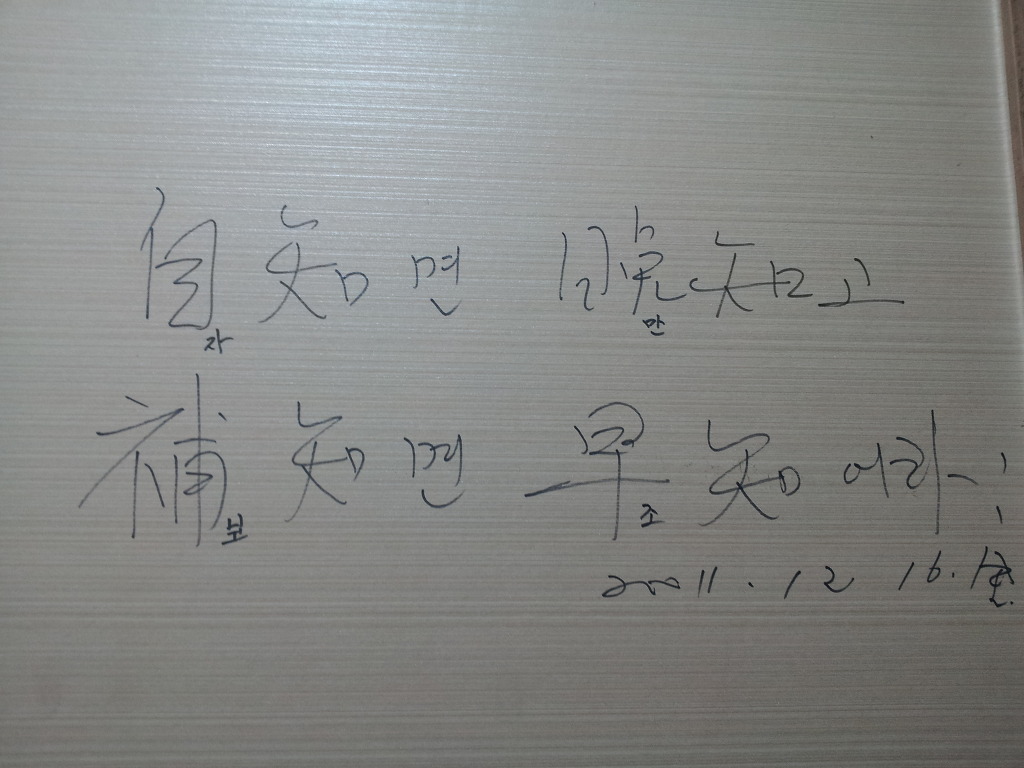 自知면 晩知고
자 만
補知면 早知어라!
보 조
2011. 12 16.